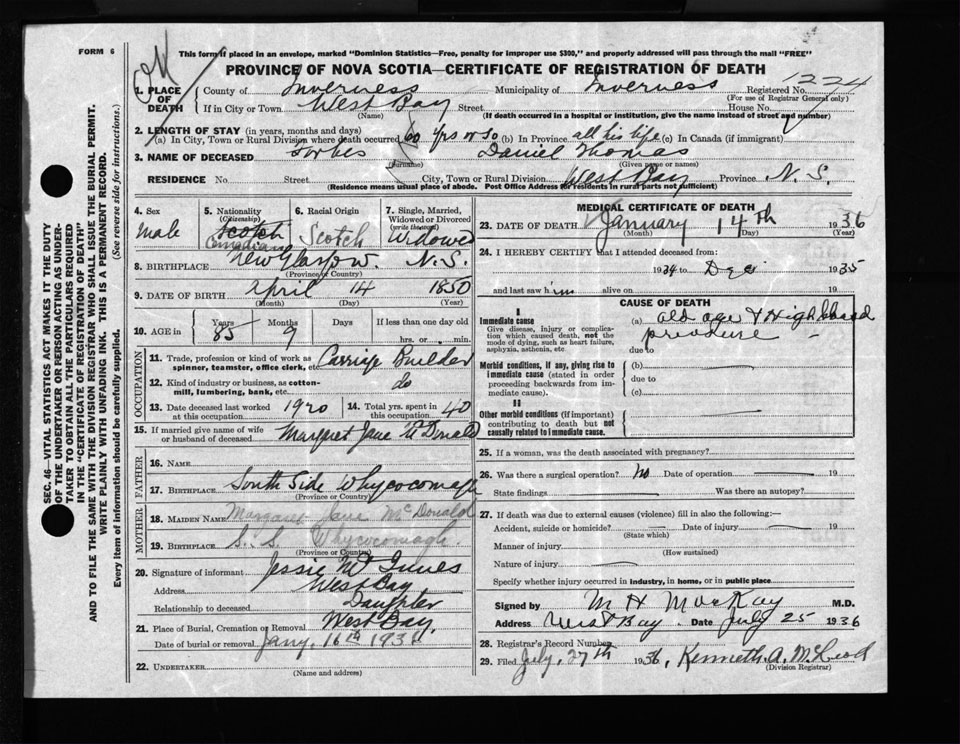 FORM 6
OK
This form if placed in an envelope, marked "Dominion Statistics—Free, penalty for improper use $300," and properly addressed will pass through the mail "FREE"
PROVINCE OF NOVA SCOTIA—CERTIFICATE OF REGISTRATION OF DEATH
1. PLACE OF DEATH County of Inverness Municipality of Inverness Registered No. 1224
(For use of Registrar General only)
If in City or Town West Bay Street House No.
(Name) (If death occurred in a hospital or institution, give the name instead of street and number)
2. LENGTH OF STAY (in years, months and days)
(a) In City, Town or Rural Division where death occurred 60 yrs or so (b) In Province all his life (c) In Canada (if immigrant)
3. NAME OF DECEASED Forbes Daniel Thomas
(Surname) (Given name or names)
RESIDENCE No. Street City, Town or Rural Division West Bay Province N. S.
(Residence means usual place of abode. Post Office Address for residents in rural parts not sufficient)
4. Sex Male
5. Nationality (Citizenship) Scotch Canadian
6. Racial Origin Scotch
7. Single, Married, Widowed or Divorced (write the word) Widowed
8. BIRTHPLACE New Glasgow. N. S.
(Province or Country)
9. DATE OF BIRTH April 14 1850
(Month) (Day) (Year)
10. AGE in Years Months Days If less than one day old
85 9 hrs. or min.
OCCUPATION
11. Trade, profession or kind of work as spinner, teamster, office clerk, etc. Carriage Builder
12. Kind of industry or business, as cotton-mill, lumbering, bank, etc. do
13. Date deceased last worked at this occupation 1920
14. Total yrs. spent in this occupation 40
15. If married give name of wife or husband of deceased Margret Jane McDonald
FATHER
16. NAME
17. BIRTHPLACE South Side Whycocomagh
(Province or Country)
MOTHER
18. MAIDEN NAME Margaret Jane McDonald
19. BIRTHPLACE S. S. Whycocomagh.
(Province or Country)
20. Signature of informant Jessie McInnes
Address West Bay
Relationship to deceased Daughter
21. Place of Burial, Cremation or Removal West Bay,
Date of burial or removal Jany, 16th 1936
22. UNDERTAKER
(Name and address)
MEDICAL CERTIFICATE OF DEATH
23. DATE OF DEATH January 14th 1936
(Month) (Day) (Year)
24. I HEREBY CERTIFY that I attended deceased from:
1934 to Dec 1935
and last saw him alive on 19
CAUSE OF DEATH
I
Immediate cause
Give disease, injury or complication which caused death, not the mode of dying, such as heart failure, asphyxia, asthenia, etc
(a) old age & High blood pressure
due to
Morbid conditions, if any, giving rise to immediate cause (stated in order proceeding backwards from immediate cause).
(b)
due to
(c)
II
Other morbid conditions (if important) contributing to death but not causally related to immediate cause.
25. If a woman, was the death associated with pregnancy?
26. Was there a surgical operation? No Date of operation 19
State findings Was there an autopsy?
27. If death was due to external causes (violence) fill in also the following:—
Accident, suicide or homicide? Date of injury 19
(State which)
Manner of injury
(How sustained)
Nature of injury
Specify whether injury occurred in industry, in home, or in public place
Signed by M H MacKay M.D.
Address West Bay. Date July 25 1936
28. Registrar's Record Number
29. Filed July, 27th 1936, Kenneth A. McLeod
(Division Registrar)
SEC. 46—VITAL STATISTICS ACT MAKES IT THE DUTY
OF THE UNDERTAKER OR PERSON ACTING AS UNDER-
TAKER TO OBTAIN ALL THE PARTICULARS REQUIRED
IN THE "CERTIFICATE OF REGISTRATION OF DEATH"
AND TO FILE THE SAME WITH THE DIVISION REGISTRAR WHO SHALL ISSUE THE BURIAL PERMIT.
WRITE PLAINLY WITH UNFADING INK. THIS IS A PERMANENT RECORD.
Every item of information should be carefully supplied. (See reverse side for instructions.)